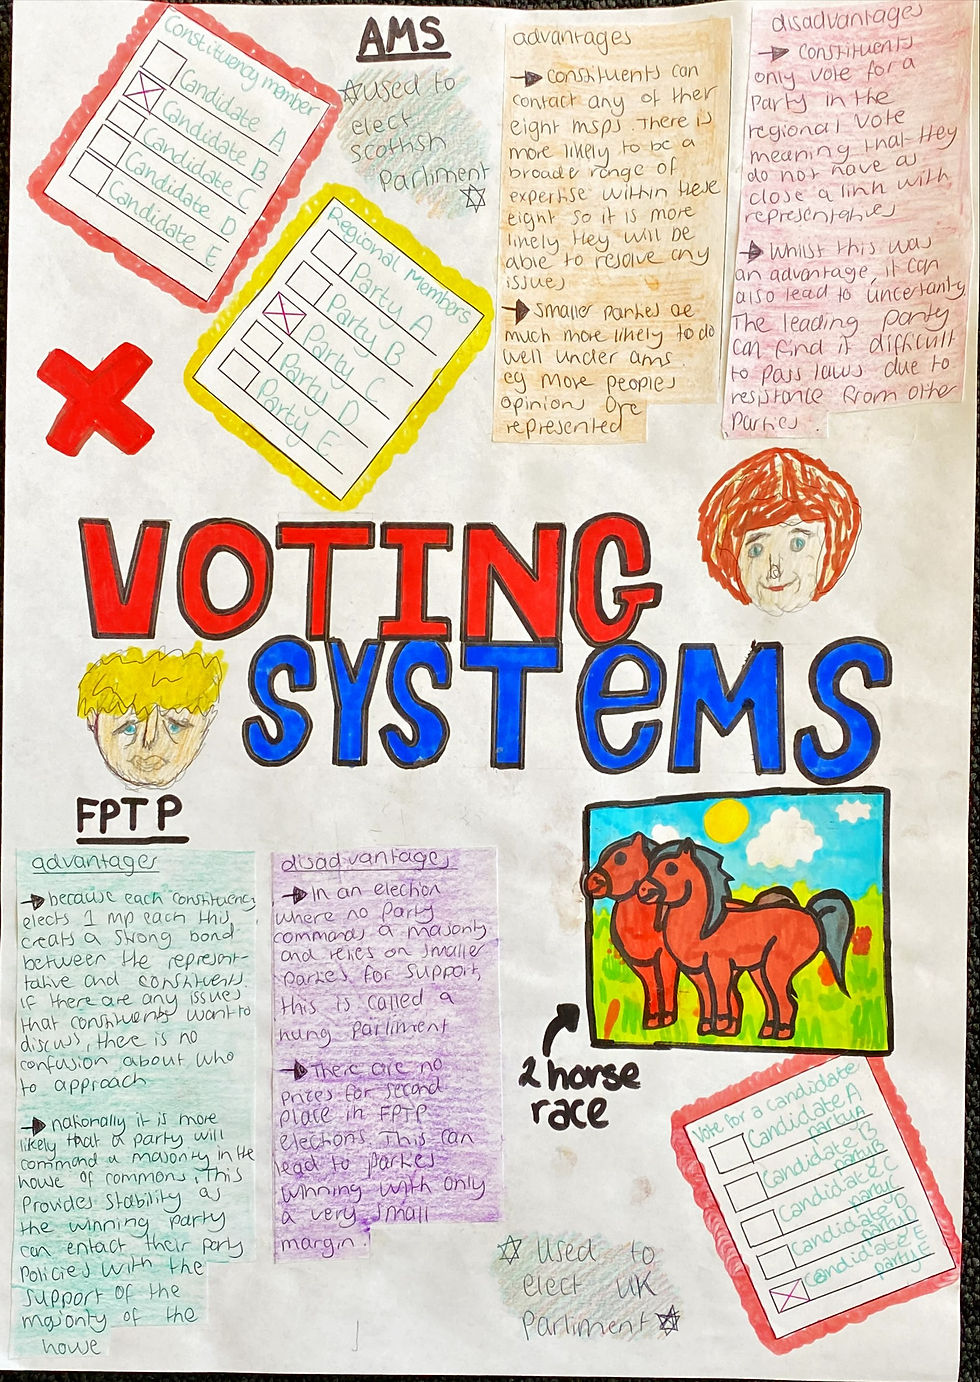 AMS
☆used to
elect
scottish
Parliment ☆
Constituency member
Candidate A
Candidate B
Candidate C
Candidate D
Candidate E
Regional Members
Party A
Party B
Party C
Party D
Party E
advantages
→ constituents can
contact any of their
eight msps. There is
more likely to be a
broader range of
expertise within these
eight so it is more
likely they will be
able to resolve any
issues
→ smaller parties are
much more likely to do
well under ams.
eg more peoples
opinions are
represented
disadvantages
→ constituents
only vote for a
Party in the
regional vote
meaning that they
do not have as
close a link with
representatives
→ Whilst this was
an advantage, it can
also lead to uncertanty.
The leading party
can find it difficult
to pass laws due to
resistance from other
Parties.
VOTING
SYSTEMS
FPTP
advantages
→ because each constituency
elects 1 mp each this
creats a strong bond
between the represen-
tative and constituents.
if there are any issues
that constituents want to
discuss, there is no
confusion about who
to approach
→ nationally it is more
likely that a party will
command a majority in the
house of commons, This
Provides stability as
the winning party
can entact their party
Policies with the
support of the
majority of the
house
disadvantages
→ In an election
where no party
commands a majority
and relies on smaller
parties for support,
this is called a
hung parliment
→ There are no
prizes for second
place in FPTP
elections. This can
lead to parties
winning with only
a very small
margin.
2 horse
race
☆ used to
elect UK
Parliment ☆
Vote for a candidate
Candidate A
party A
Candidate B
party B
Candidate C
party C
Candidate D
party D
Candidate E
party E